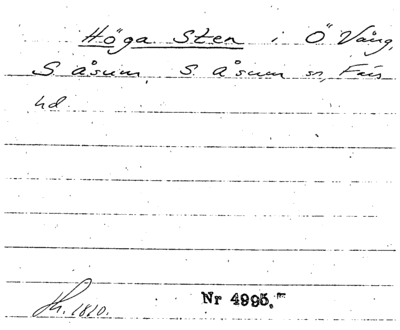 Höga Sten i Ö Vång,
S. åsum, S. Åsum sn, Färs
hd
1810. Nr 4995.